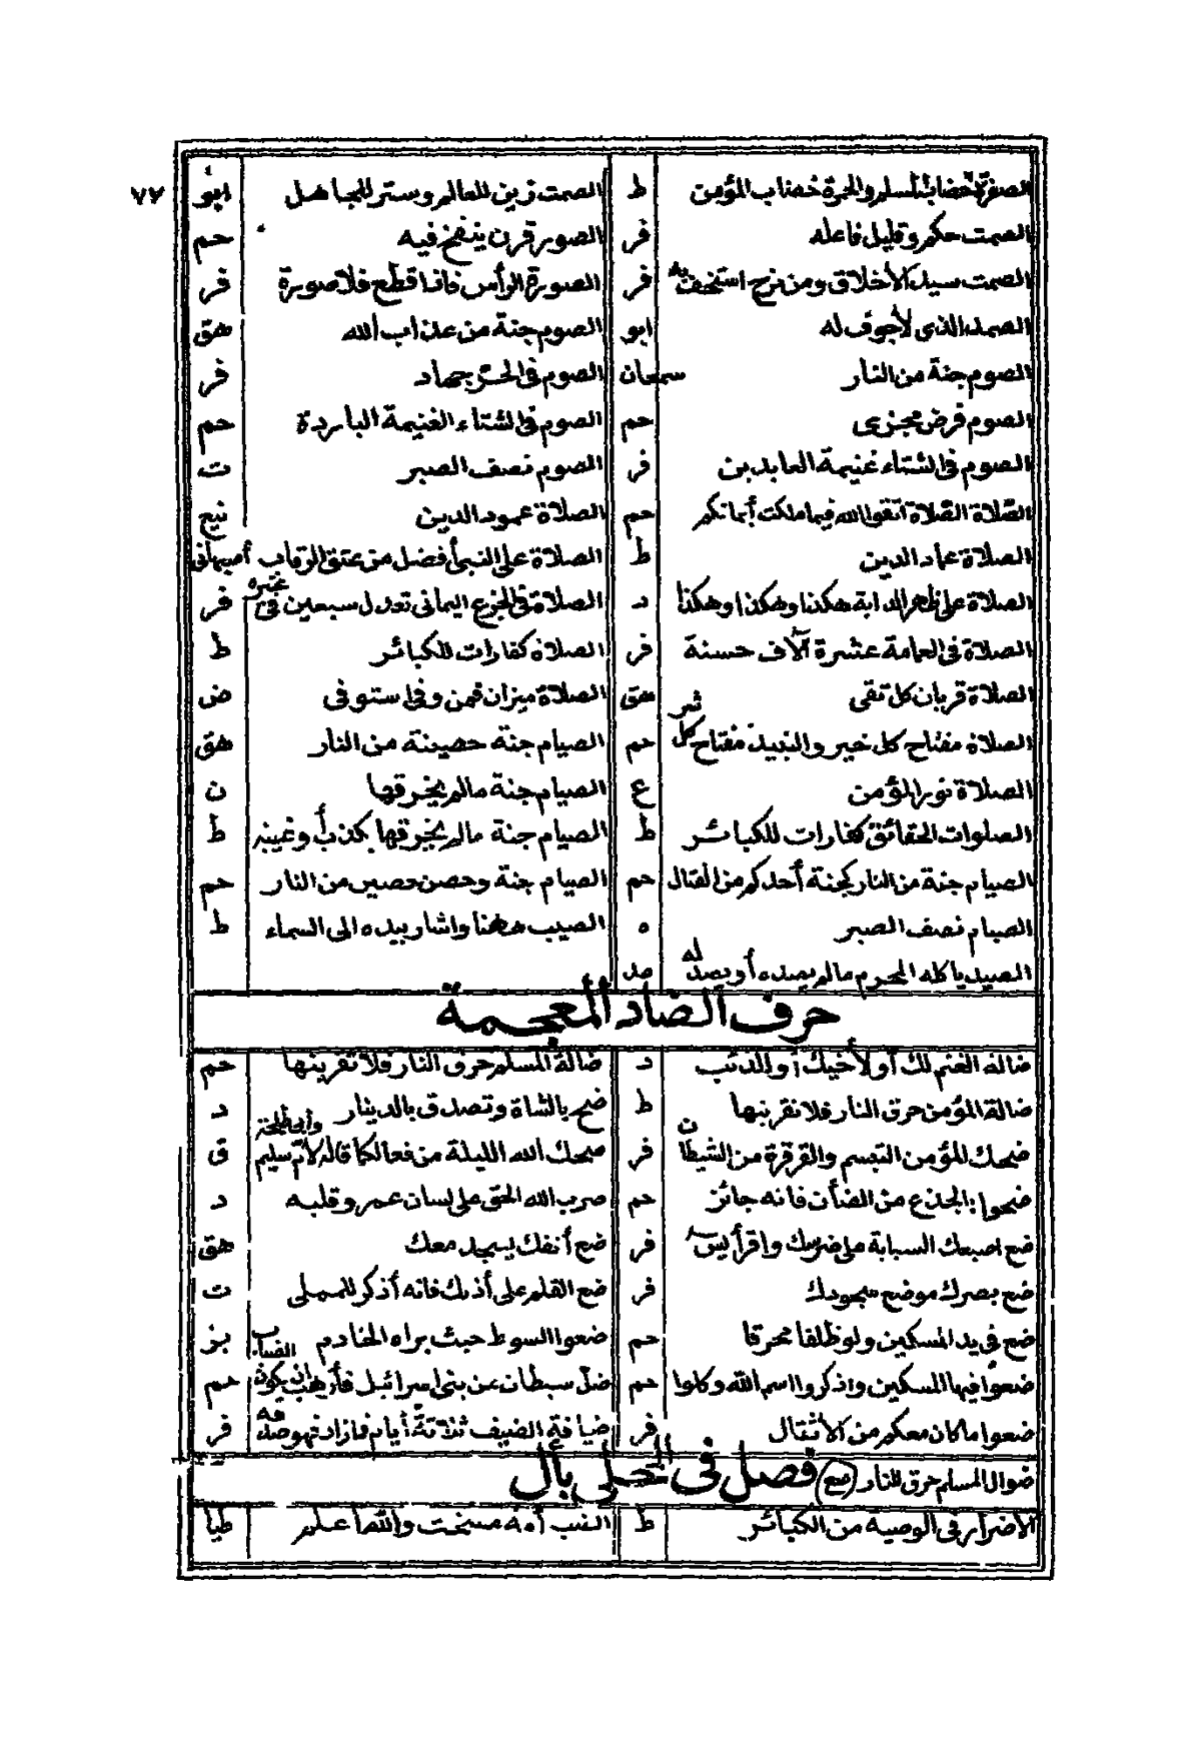 ٧٧
الصفرة خضاب المسلم والحمرة خضاب المؤمن ط الصمت زين للعالم وستر للجاهل ابو
الصمت حكم وقليل فاعله فر الصور قرن ينفخ فيه حم
الصمت سيد الأخلاق ومن مزح استخف به فر الصورة الرأس فاذا قطع فلا صورة فر
الصمد الذى لا جوف له ابو الصوم جنة من عذاب الله هق
الصوم جنة من النار سمعان الصوم فى الحر جهاد فر
الصوم فرض مجزى حم الصوم فى الشتاء الغنيمة الباردة حم
الصوم فى الشتاء غنيمة العابدين فر الصوم نصف الصبر ت
الصلاة الصلاة اتقوا الله فيما ملكت أيمانكم حم الصلاة عمود الدين نيع
الصلاة عماد الدين ط الصلاة على النبى أفضل من عتق الرقاب أصبهانى
الصلاة على ظهر الدابة هكذا وهكذا وهكذا د الصلاة فى الجزع اليمانى تعدل سبعين فى غيره فر
الصلاة فى العمامة عشرة آلاف حسنة فر الصلاة كفارات للكبائر ط
الصلاة قربان كل تقى هق الصلاة ميزان فمن وفى استوفى ض
الصلاة مفتاح كل خير والنبيذ مفتاح كل شر حم الصيام جنة حصينة من النار هق
الصلاة نور المؤمن ع الصيام جنة مالم يخرقها ن
الصلوات الحقائق كفارات للكبائر ط الصيام جنة مالم يخرقها بكذب أو غيبة ط
الصيام جنة من النار كجنة أحدكم من القتال حم الصيام جنة وحصن حصين من النار حم
الصيام نصف الصبر ه الصيب ههنا واشار بيده الى السماء ط
الصيد يأكله المحرم مالم يصده أو يصد له مد
حرف الضاد المعجمة
ضالة الغنم لك أو لأخيك أو للذئب د ضالة المسلم حرق النار فلا تقربنها حم
ضالة المؤمن حرق النار فلا تقربنها ط ضح بالشاة وتصدق بالدينار د
ضحك المؤمن التبسم والقرقرة من الشيطان فر ضحك الله الليلة من فعالكما قاله لأم سليم وأبى طلحة ق
ضحوا بالجذع من الضأن فانه جائز حم ضرب الله الحق على لسان عمر وقلبه د
ضع اصبعك السبابة على ضرسك واقرأ يس فر ضع أنفك يسجد معك هق
ضع بصرك موضع سجودك فر ضع القلم على أذنك فانه أذكر للمملى ت
ضع فى يد المسكين ولو ظلفا محرقا حم ضعوا السوط حيث يراه الخادم بز
ضعوا فيها السكين واذكروا اسم الله وكلوا حم ضل سبطان من بنى اسرائيل فأرهب ان يكون الضباب حم
ضعوا ما كان معكم من الأثقال فر ضيافة الضيف ثلاثة أيام فما زاد فهو صدقه فر
ضوال المسلم حرق النار (مج) فصل فى المحلى بأل
الاضرار فى الوصية من الكبائر ط الضب أمة مسخت والله أعلم طيا